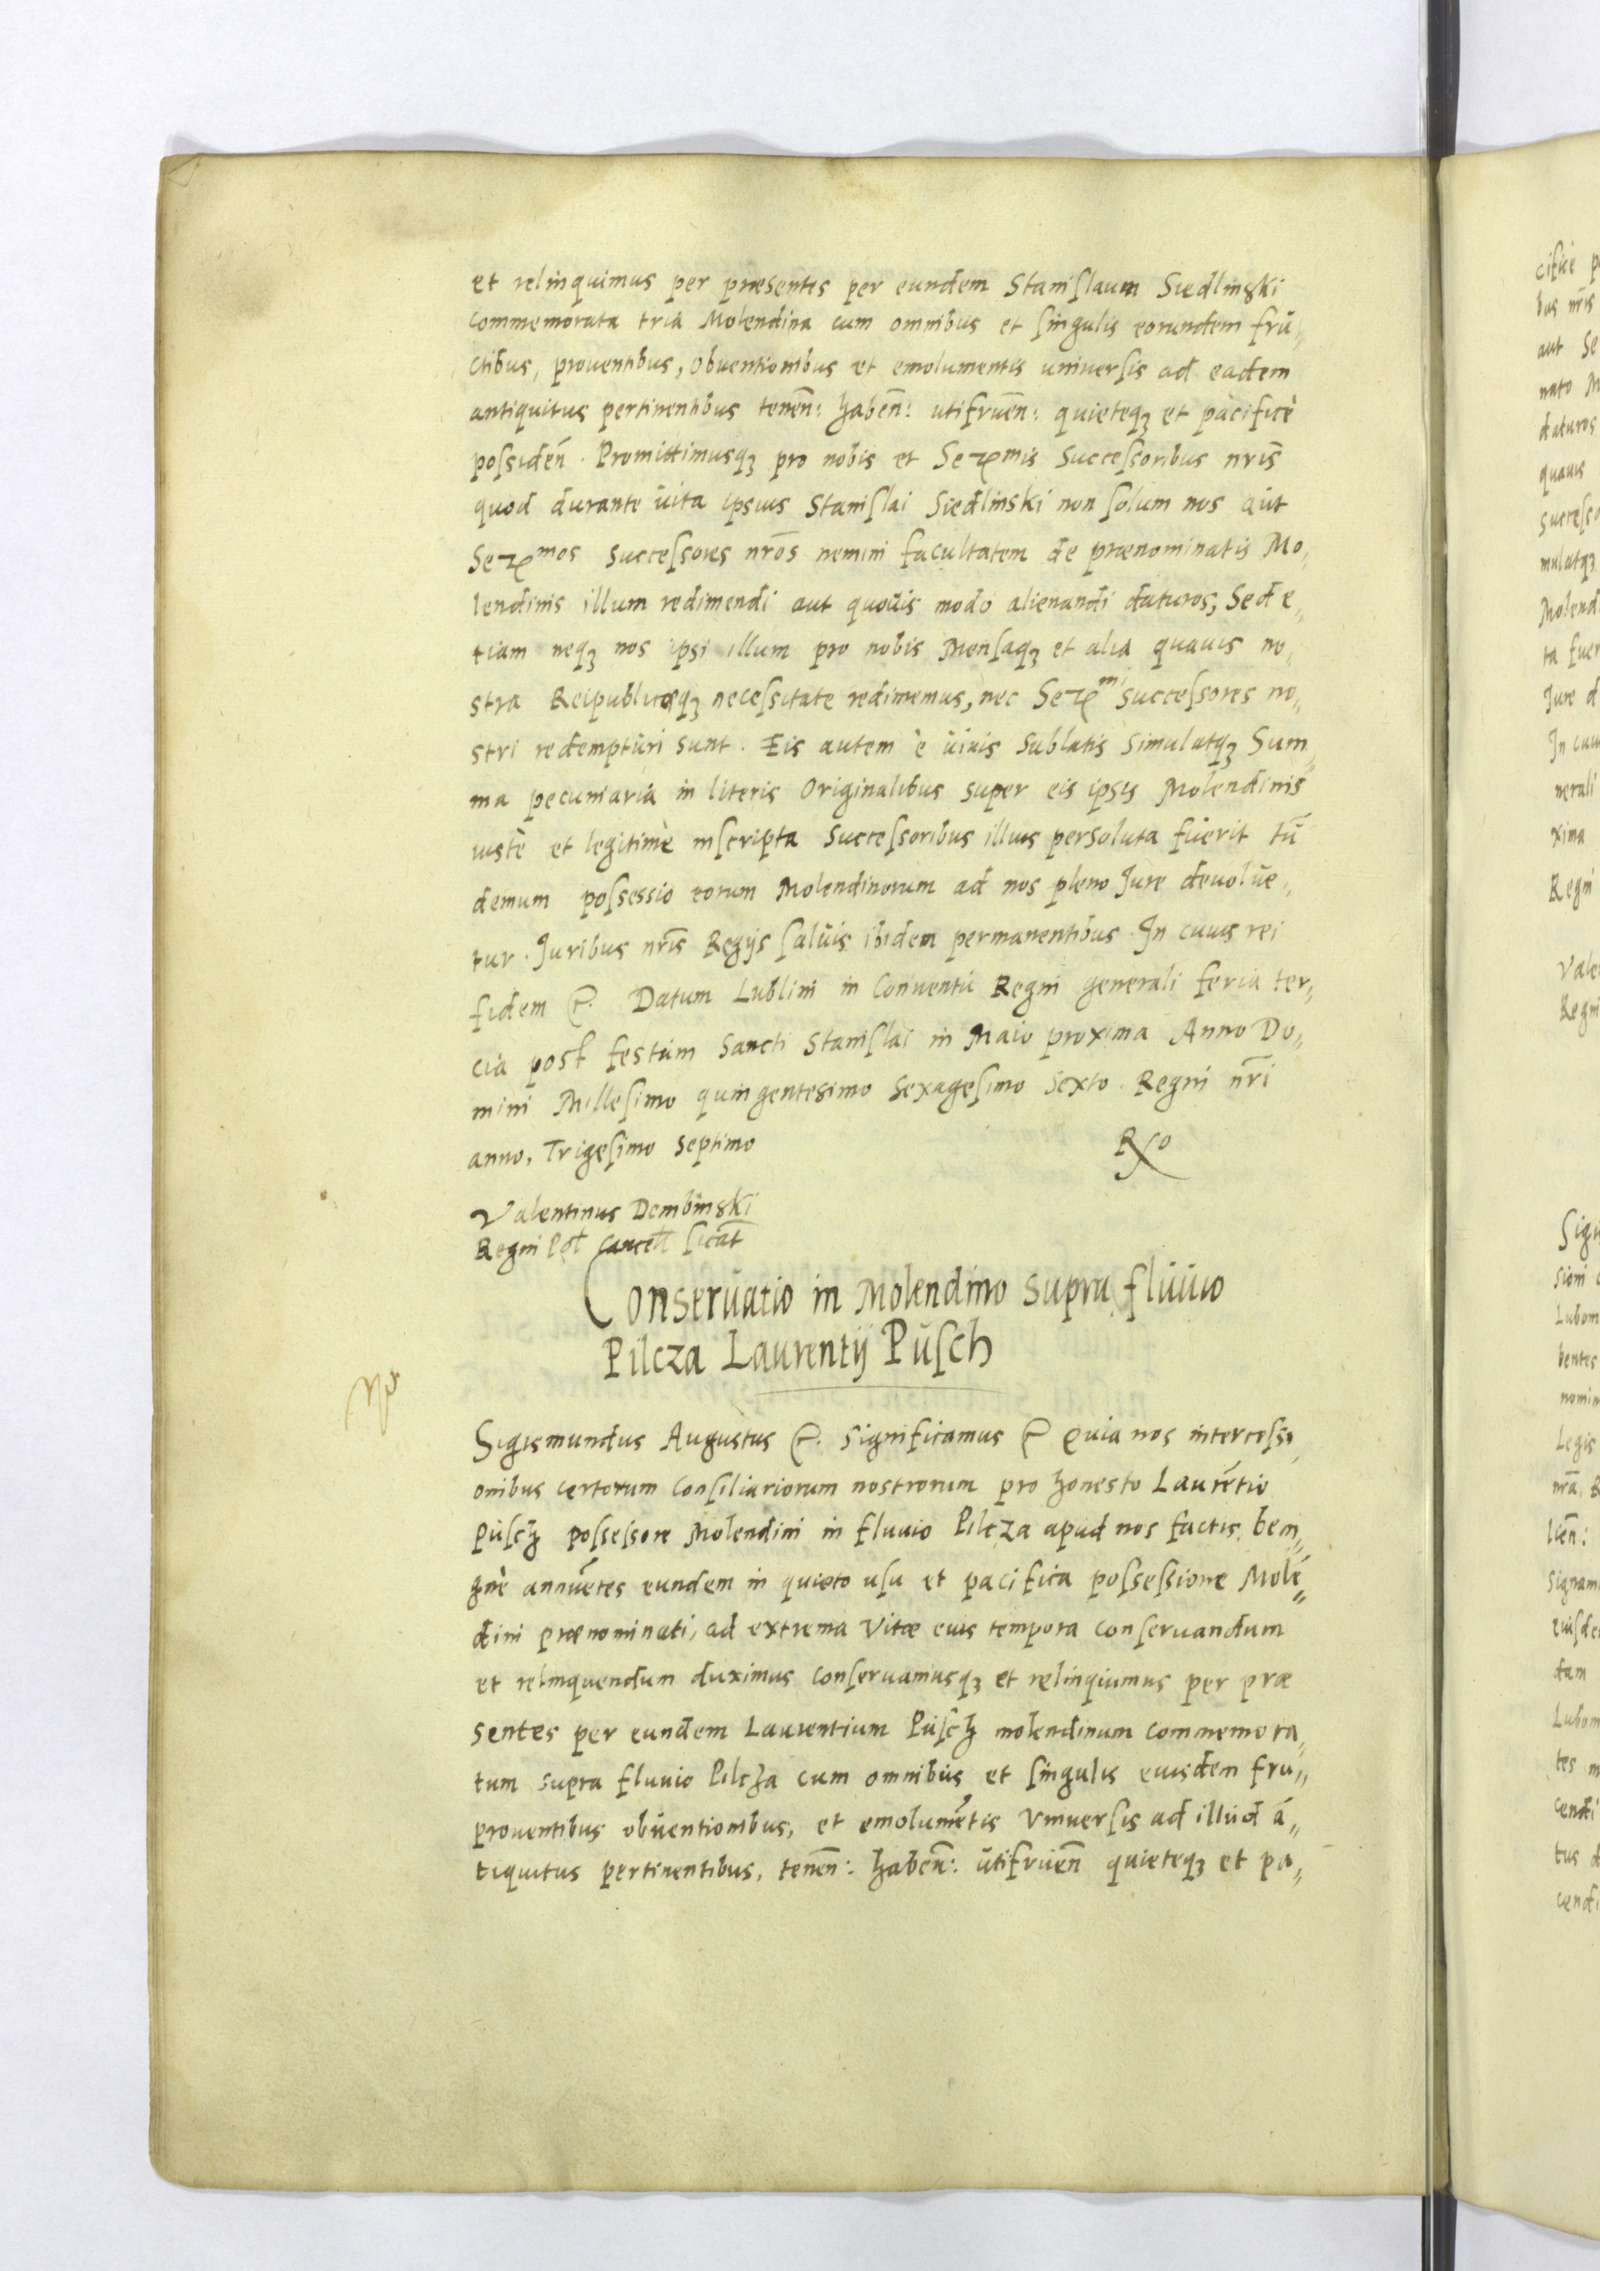 et relinquimus per præsentes per eundem Stanislaum Siedlinski
commemorata tria Molendina cum omnibus et singulis eorundem fru„
ctibus, prouentibus, obuentionibus et emolumentis uniuersis ad eadem
antiquitus pertinentibus tenen̄: haben̄: utifruen̄: quieteqꝫ et pacificè
possiden̄. Promittimusqꝫ pro nobis et Seꝛmis Successoribus nr̄is
quod durante uita ipsius Stanislai Siedlinski non solum nos aut
Seꝛmos successores nr̄os nemini facultatem de prænominatis Mo„
lendinis illum redimendi aut quouis modo alienandi daturos, Sed e„
tiam neqꝫ nos ipsi illum pro nobis Mensaqꝫ et alia quauis no„
stra Reipublicæqꝫ necessitate redimemus, nec Seꝛmi successores no„
stri redempturi sunt. Eis autem è uiuis sublatis simulatqꝫ Sum„
ma pecuniaria in literis Originalibus super eis ipsis Molendinis
iustè et legitimè inscripta Successoribus illius persoluta fuerit tū
demum possessio eorum Molendinorum ad nos pleno Jure deuolue„
tur. Juribus nr̄is Regijs saluis ibidem permanentibus. In cuius rei
fidem &. Datum Lublini in Conuentu Regni generali feria ter„
cia post festum Sancti Stanislai in Maio proxima Anno Do„
mini Millesimo quingentesimo Sexagesimo Sexto. Regni nr̄i
anno, Trigesimo septimo
Valentinus Dembinski
Regni Pol Cancell
Conseruatio in Molendino supra fluuio
Pilcza Laurentij Pusch
Sigismundus Augustus &. Significamus & Quia nos intercessi„
onibus certorum Consiliariorum nostrorum pro honesto Laurētio
Pusch possessore Molendini in fluuio Pilcza apud nos factis, beni„
gnè annuētes eundem in quieto usu et pacifica possessione Molē„
dini prænominati, ad extrema Vitæ eius tempora conseruandum
et relinquendum duximus conseruamusqꝫ et relinquimus per præ
sentes per eundem Laurentium Pusch molendinum commemora„
tum supra fluuio Pilcza cum omnibus et singulis eiusdem fru„
prouentibus obuentionibus, et emolumētis Vniuersis ad illud ā„
tiquitus pertinentibus, tenen̄: haben̄: utifruen̄ quieteqꝫ et pa„